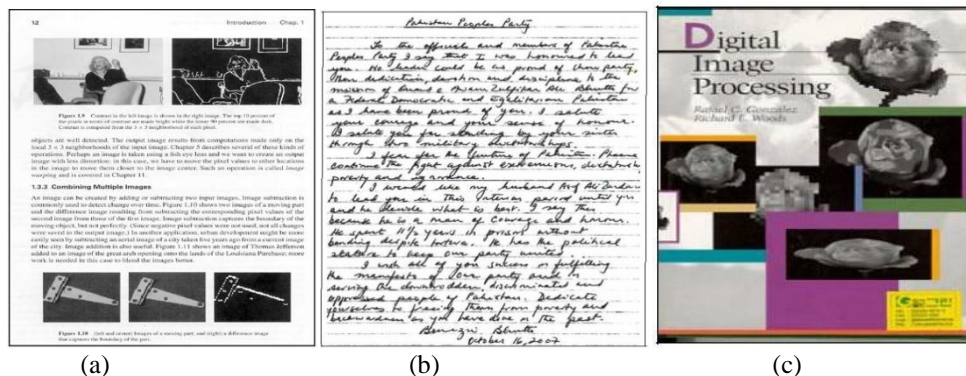 12 Introduction Chap. 1
Figure 1.9 Contrast in the left image is shown in the right image. The top 10 percent of
the pixels in terms of contrast are made bright while the lower 90 percent are made dark.
Contrast is computed from the 3 × 3 neighborhood of each pixel.
objects are well detected. The output image results from computations made only on the
local 3 × 3 neighborhoods of the input image. Chapter 5 describes several of these kinds of
operations. Perhaps an image is taken using a fish eye lens and we want to create an output
image with less distortion: in this case, we have to move the pixels to other locations
in the image to move them closer to the image center. Such an operation is called image
warping and is covered in Chapter 11.
1.3.3 Combining Multiple Images
An image can be created by adding or subtracting two input images. Image subtraction is
commonly used to detect change over time. Figure 1.10 shows two images of a moving part
and the difference image resulting from subtracting the corresponding pixel values of the
second image from those of the first image. Image subtraction captures the boundary of the
moving object, but not perfectly. (Since negative pixel values were not used, not all changes
were saved in the output image.) In another application, urban development might be more
easily seen by subtracting an aerial image of a city taken five years ago from a current image
of the city. Image addition is also useful. Figure 1.11 shows an image of Thomas Jefferson
added to an image of the great arch opening onto the lands of the Louisiana Purchase; more
work is needed in this case to blend the images better.
Figure 1.10 (left and center) Images of a moving part, and (right) a difference image
that captures the boundary of the part.
(a)
Pakistan Peoples Party
To the officials and members of Pakistan
Peoples Party I say that I was honoured to lead
you. No leader could be as proud of their party,
their dedication, devotion and discipline to the
mission of Quaid e Awam Zulfikar Ali Bhutto for
a Federal Democratic and Egalitarian Pakistan
as I have been proud of you. I salute
your courage and your sense of honour.
I salute you for standing by your sister
through two military dictatorships.
I fear for the future of Pakistan. Please
continue the fight against extremism, dictatorship,
poverty and ignorance.
I would like my husband Asif Ali Zardari
to lead you in this interim period until you
and he decide what is best. I say this
because he is a man of courage and honour.
He spent 11½ years in prison without
bending despite torture. He has the political
stature to keep our party united.
I wish all of you success in fulfilling
the manifesto of our party and in
serving the downtrodden, discriminated and
oppressed people of Pakistan. Dedicate
yourselves to freeing them from poverty and
backwardness as you have done in the past.
Benazir Bhutto
October 16, 2007
(b)
Digital
Image
Processing
Rafael C. Gonzalez
Richard E. Woods
(c)